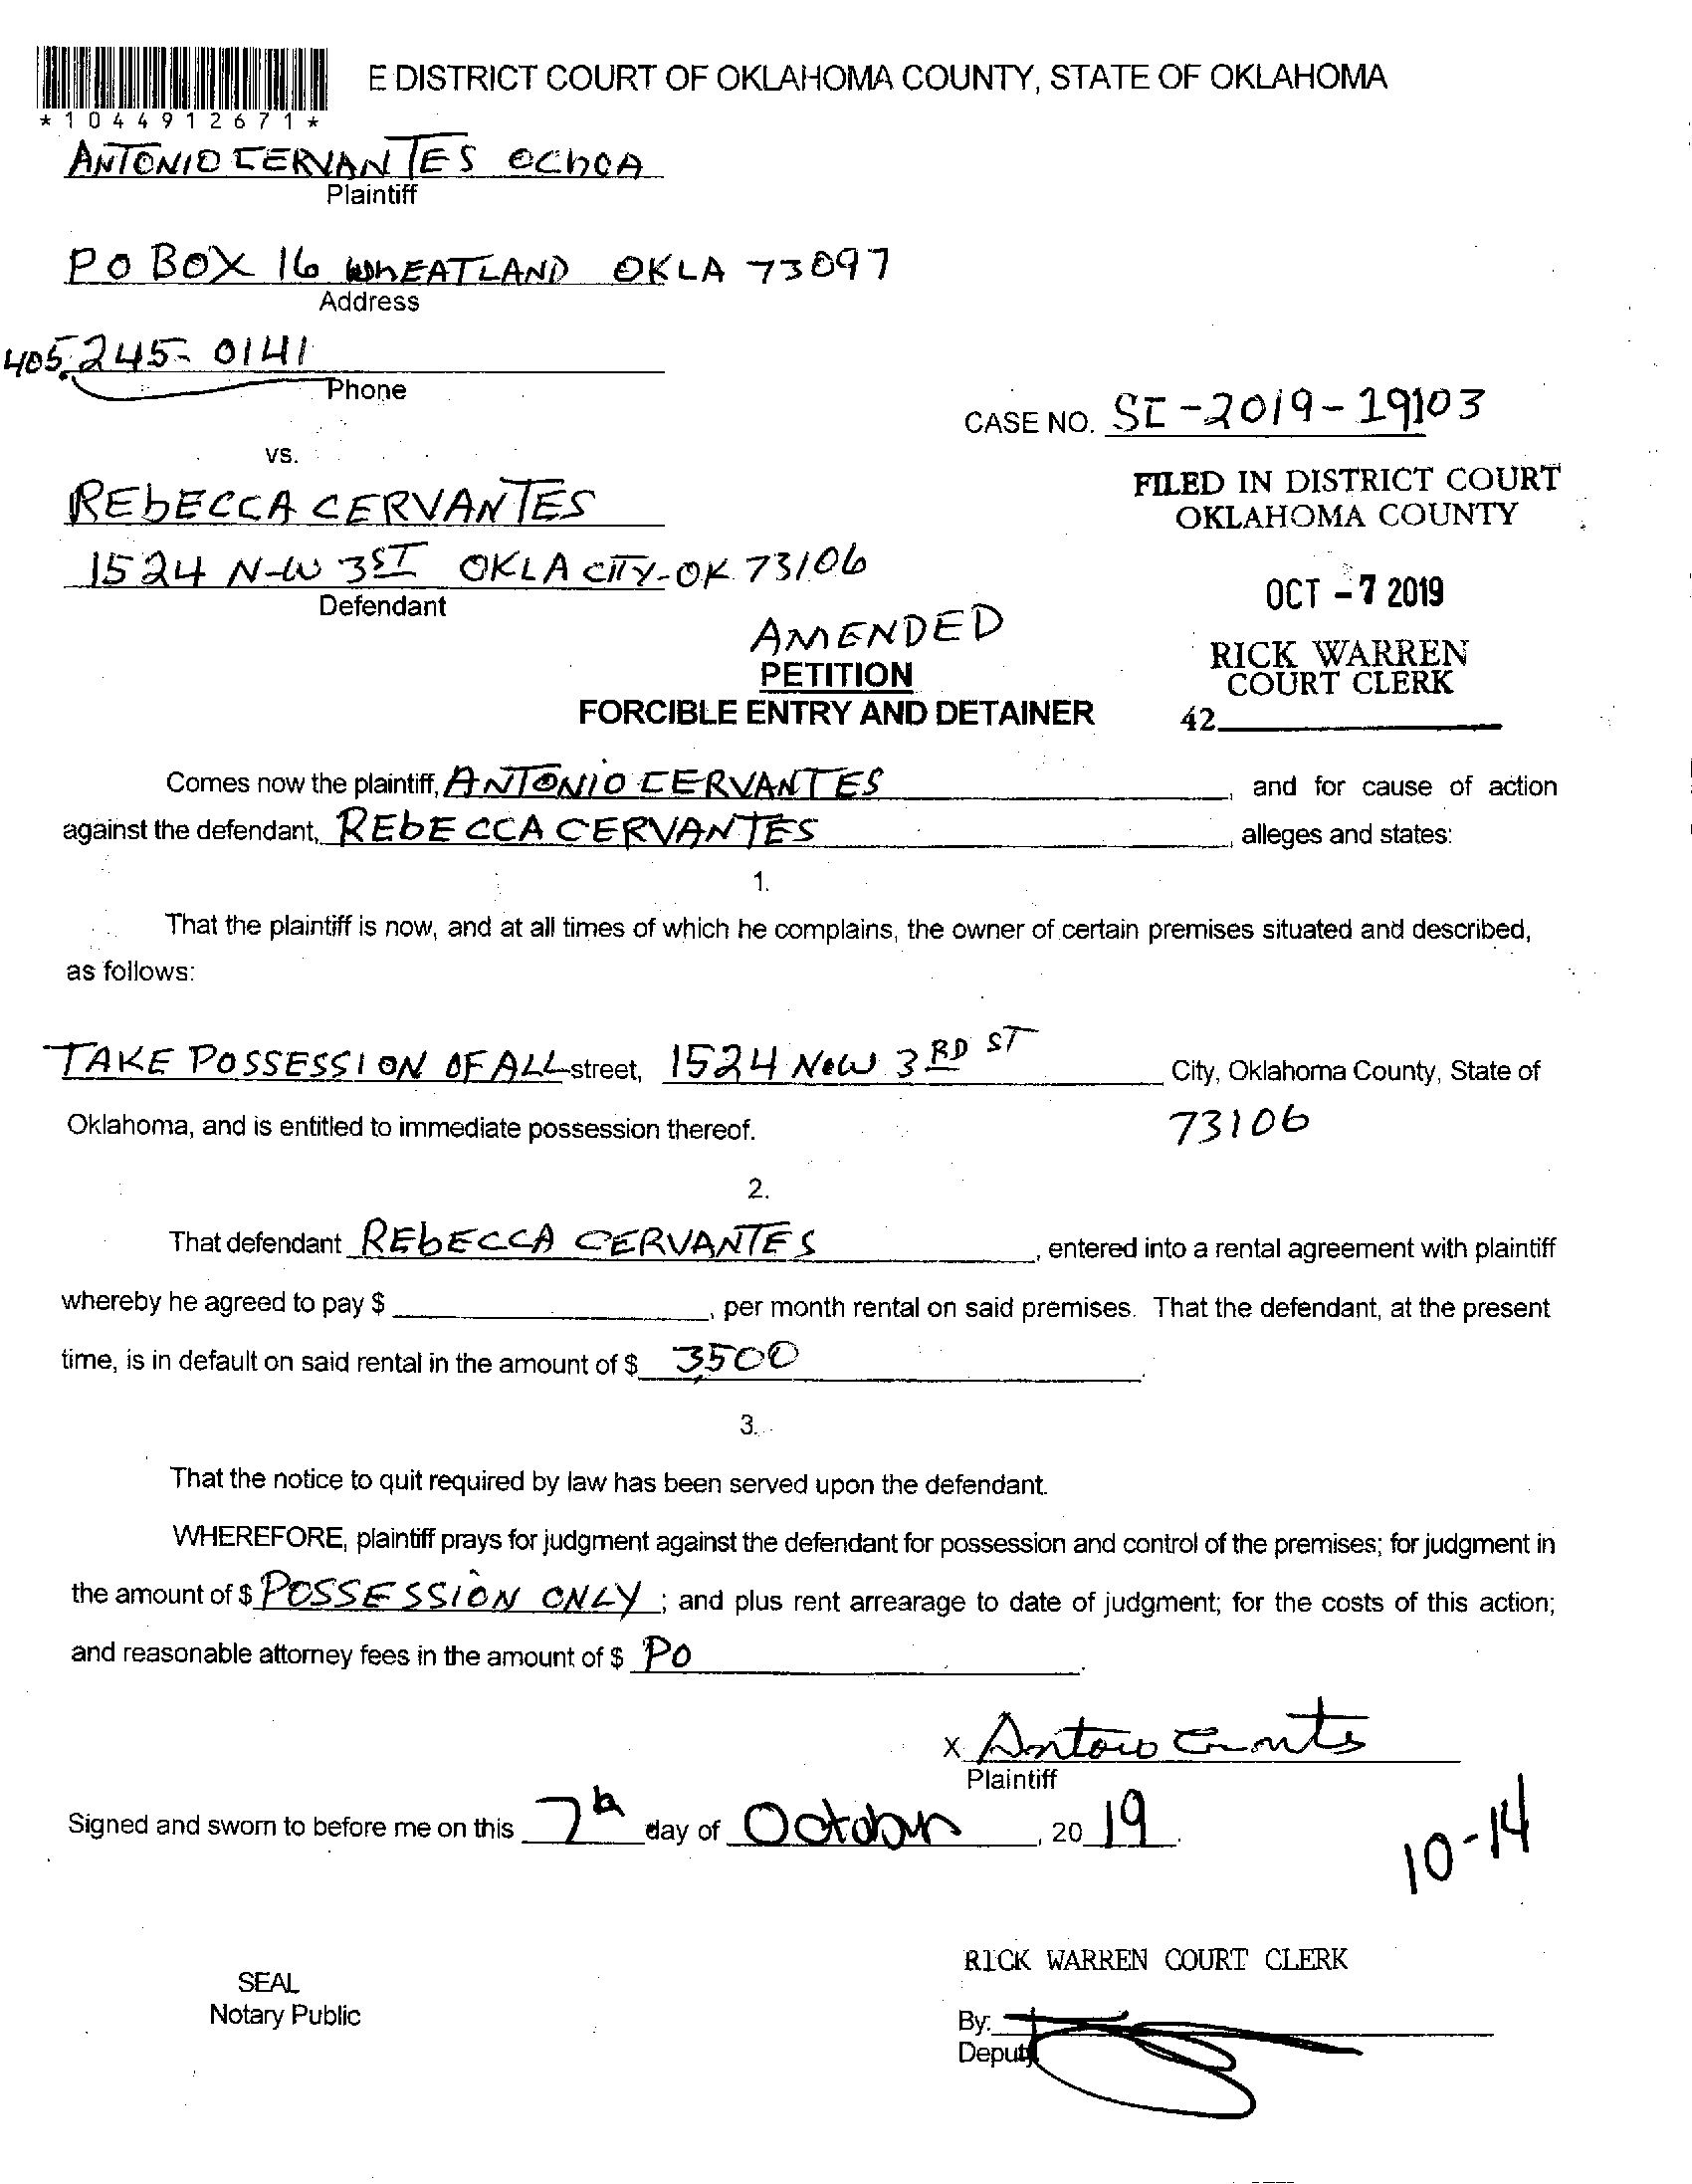 E DISTRICT COURT OF OKLAHOMA COUNTY, STATE OF OKLAHOMA
*1044912671*
ANTONIO CERVANTES OCHOA
Plaintiff
PO BOX 16 WHEATLAND OKLA 73097
Address
405 245-0141
Phone
CASE NO. SC-2019-19103
vs.
FILED IN DISTRICT COURT
OKLAHOMA COUNTY
REBECCA CERVANTES
1524 N-W 3ST OKLA CITY-OK 73106
Defendant
OCT -7 2019
AMENDED
PETITION
FORCIBLE ENTRY AND DETAINER
RICK WARREN
COURT CLERK
42
Comes now the plaintiff, ANTONIO CERVANTES, and for cause of action
against the defendant, REBECCA CERVANTES, alleges and states:
1.
That the plaintiff is now, and at all times of which he complains, the owner of certain premises situated and described,
as follows:
TAKE POSSESSION OF ALL street, 1524 N.W 3RD ST City, Oklahoma County, State of
Oklahoma, and is entitled to immediate possession thereof. 73106
2.
That defendant REBECCA CERVANTES, entered into a rental agreement with plaintiff
whereby he agreed to pay $ , per month rental on said premises. That the defendant, at the present
time, is in default on said rental in the amount of $ 3,500.
3.
That the notice to quit required by law has been served upon the defendant.
WHEREFORE, plaintiff prays for judgment against the defendant for possession and control of the premises; for judgment in
the amount of $ POSSESSION ONLY; and plus rent arrearage to date of judgment; for the costs of this action;
and reasonable attorney fees in the amount of $ PO.
X Antonio Cervantes
Plaintiff
Signed and sworn to before me on this 7th day of October, 2019.
10-14
RICK WARREN COURT CLERK
SEAL
Notary Public
By:
Deputy